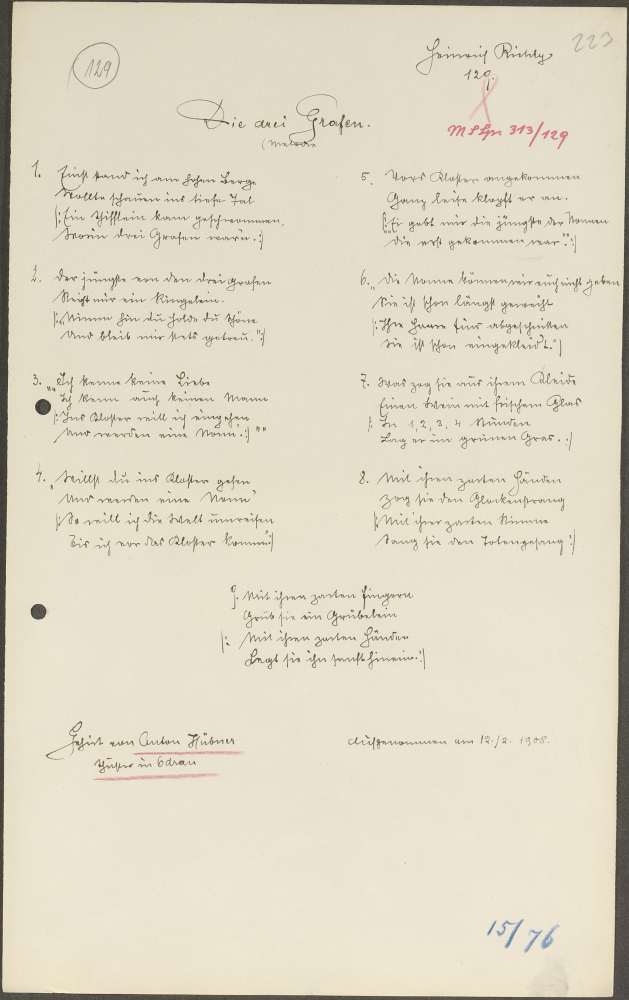 223
129
Heinrich
129.
313/129
Die drei Grafen.
(Melodie
1. Einst stand ich am hohen Berge
Wollte schauen ins tiefe Tal
|: Ein Schifflein kam geschwommen,
Worin drei Grafen war'n. :|
2. Der jüngste von den drei Grafen
Reigt mir ein Ringelein.
|: „Nimm hin du holde du Schöne
Und bleib mir stets getreu.“ :|
3. „Ich kenne keine Liebe
Ich kenn auch keinen Mann
|: Ins Kloster will ich eingehen
Und werden eine Nonn'. :| “
4. „Willst du ins Kloster gehen
Und werden eine Nonn'
|: So will ich die Welt umreisen
Bis ich vor das Kloster komm'. :|
5. Vors Kloster angekommen
Ganz leise klopft er an.
|: Er gebt mir die jüngste der Nonnen
Die erst gekommen war“. :|
6. „Die Nonne können wir euch nicht geben
Sie ist schon längst geweiht
|: Ihre Haare sind abgeschnitten
Sie ist schon eingekleid't.“ :|
7. Was zog sie aus ihrem Kleide
Einen Wein mit frischem Glas
|: In 1, 2, 3, 4 Stunden
Lag er im grünen Gras. :|
8. Mit ihren zarten Händen
Zog sie den Glockenstrang
|: Mit ihrer zarten Stimme
Sang sie den Totengesang :|
9. Mit ihren zarten Fingern
Grub sie ein Grübelein
|: Mit ihren zarten Händen
Legt sie ihn sanft hinein. :|
Gehört von Anton Hübner
in Odrau
Aufgenommen am 12./2. 1908.
15/76